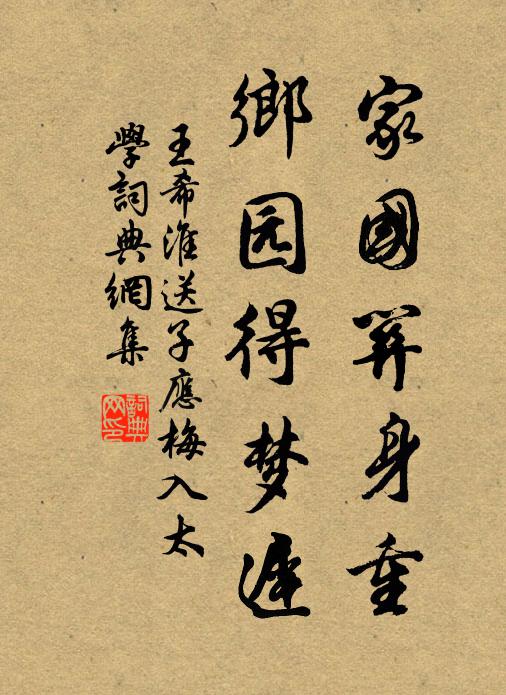 家國關身重
鄉园得梦遲
王希淮送子應梅入太
學詞典網集
詞典
网印